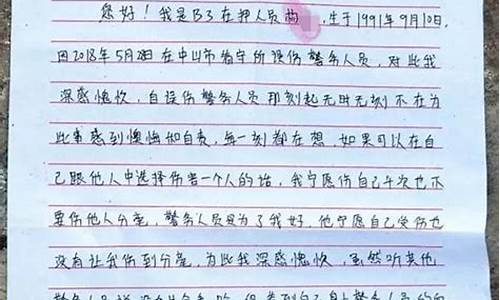 您好！我是B3在押人员,生于1991年9月10日.
因2018年5月28日在中山市看守所误伤警务人员,对此我
深感愧疚,自误伤警务人员那刻起无时无刻不在为
此事感到懊悔和自责,每一刻都在想,如果可以在自
己跟他人中选择伤害一个人的话,我宁愿伤自己千次也不
要伤他人分毫,警务人员是为了我好,他宁愿自己受伤也
没有让我伤到分毫,为此我深感愧疚,虽然听其他
警务人员说没有什么